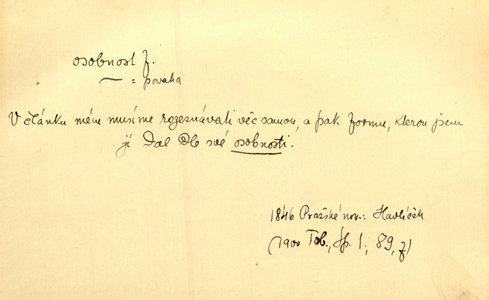 osobnost f.
~ = povaha
V článku mém musíme rozeznávati věc samou, a pak formu, kterou jsem
jí dal dle své osobnosti.
1846 Pražské nov.: Havlíček
(1900 Tob., Sp. 1, 89, f)